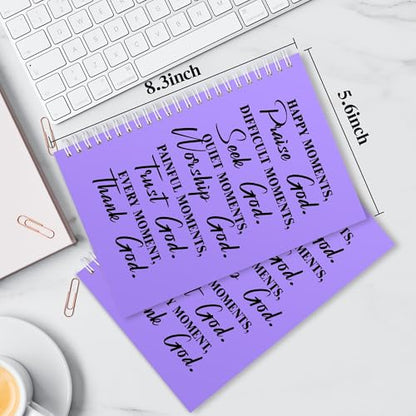 8.3inch
5.6inch
HAPPY MOMENTS,
Praise God.
DIFFICULT MOMENTS,
Seek God.
QUIET MOMENTS,
Worship God.
PAINFUL MOMENTS,
Trust God.
EVERY MOMENT,
Thank God.
God.
God.
God.
MOMENTS,
God.
MOMENT,
God.